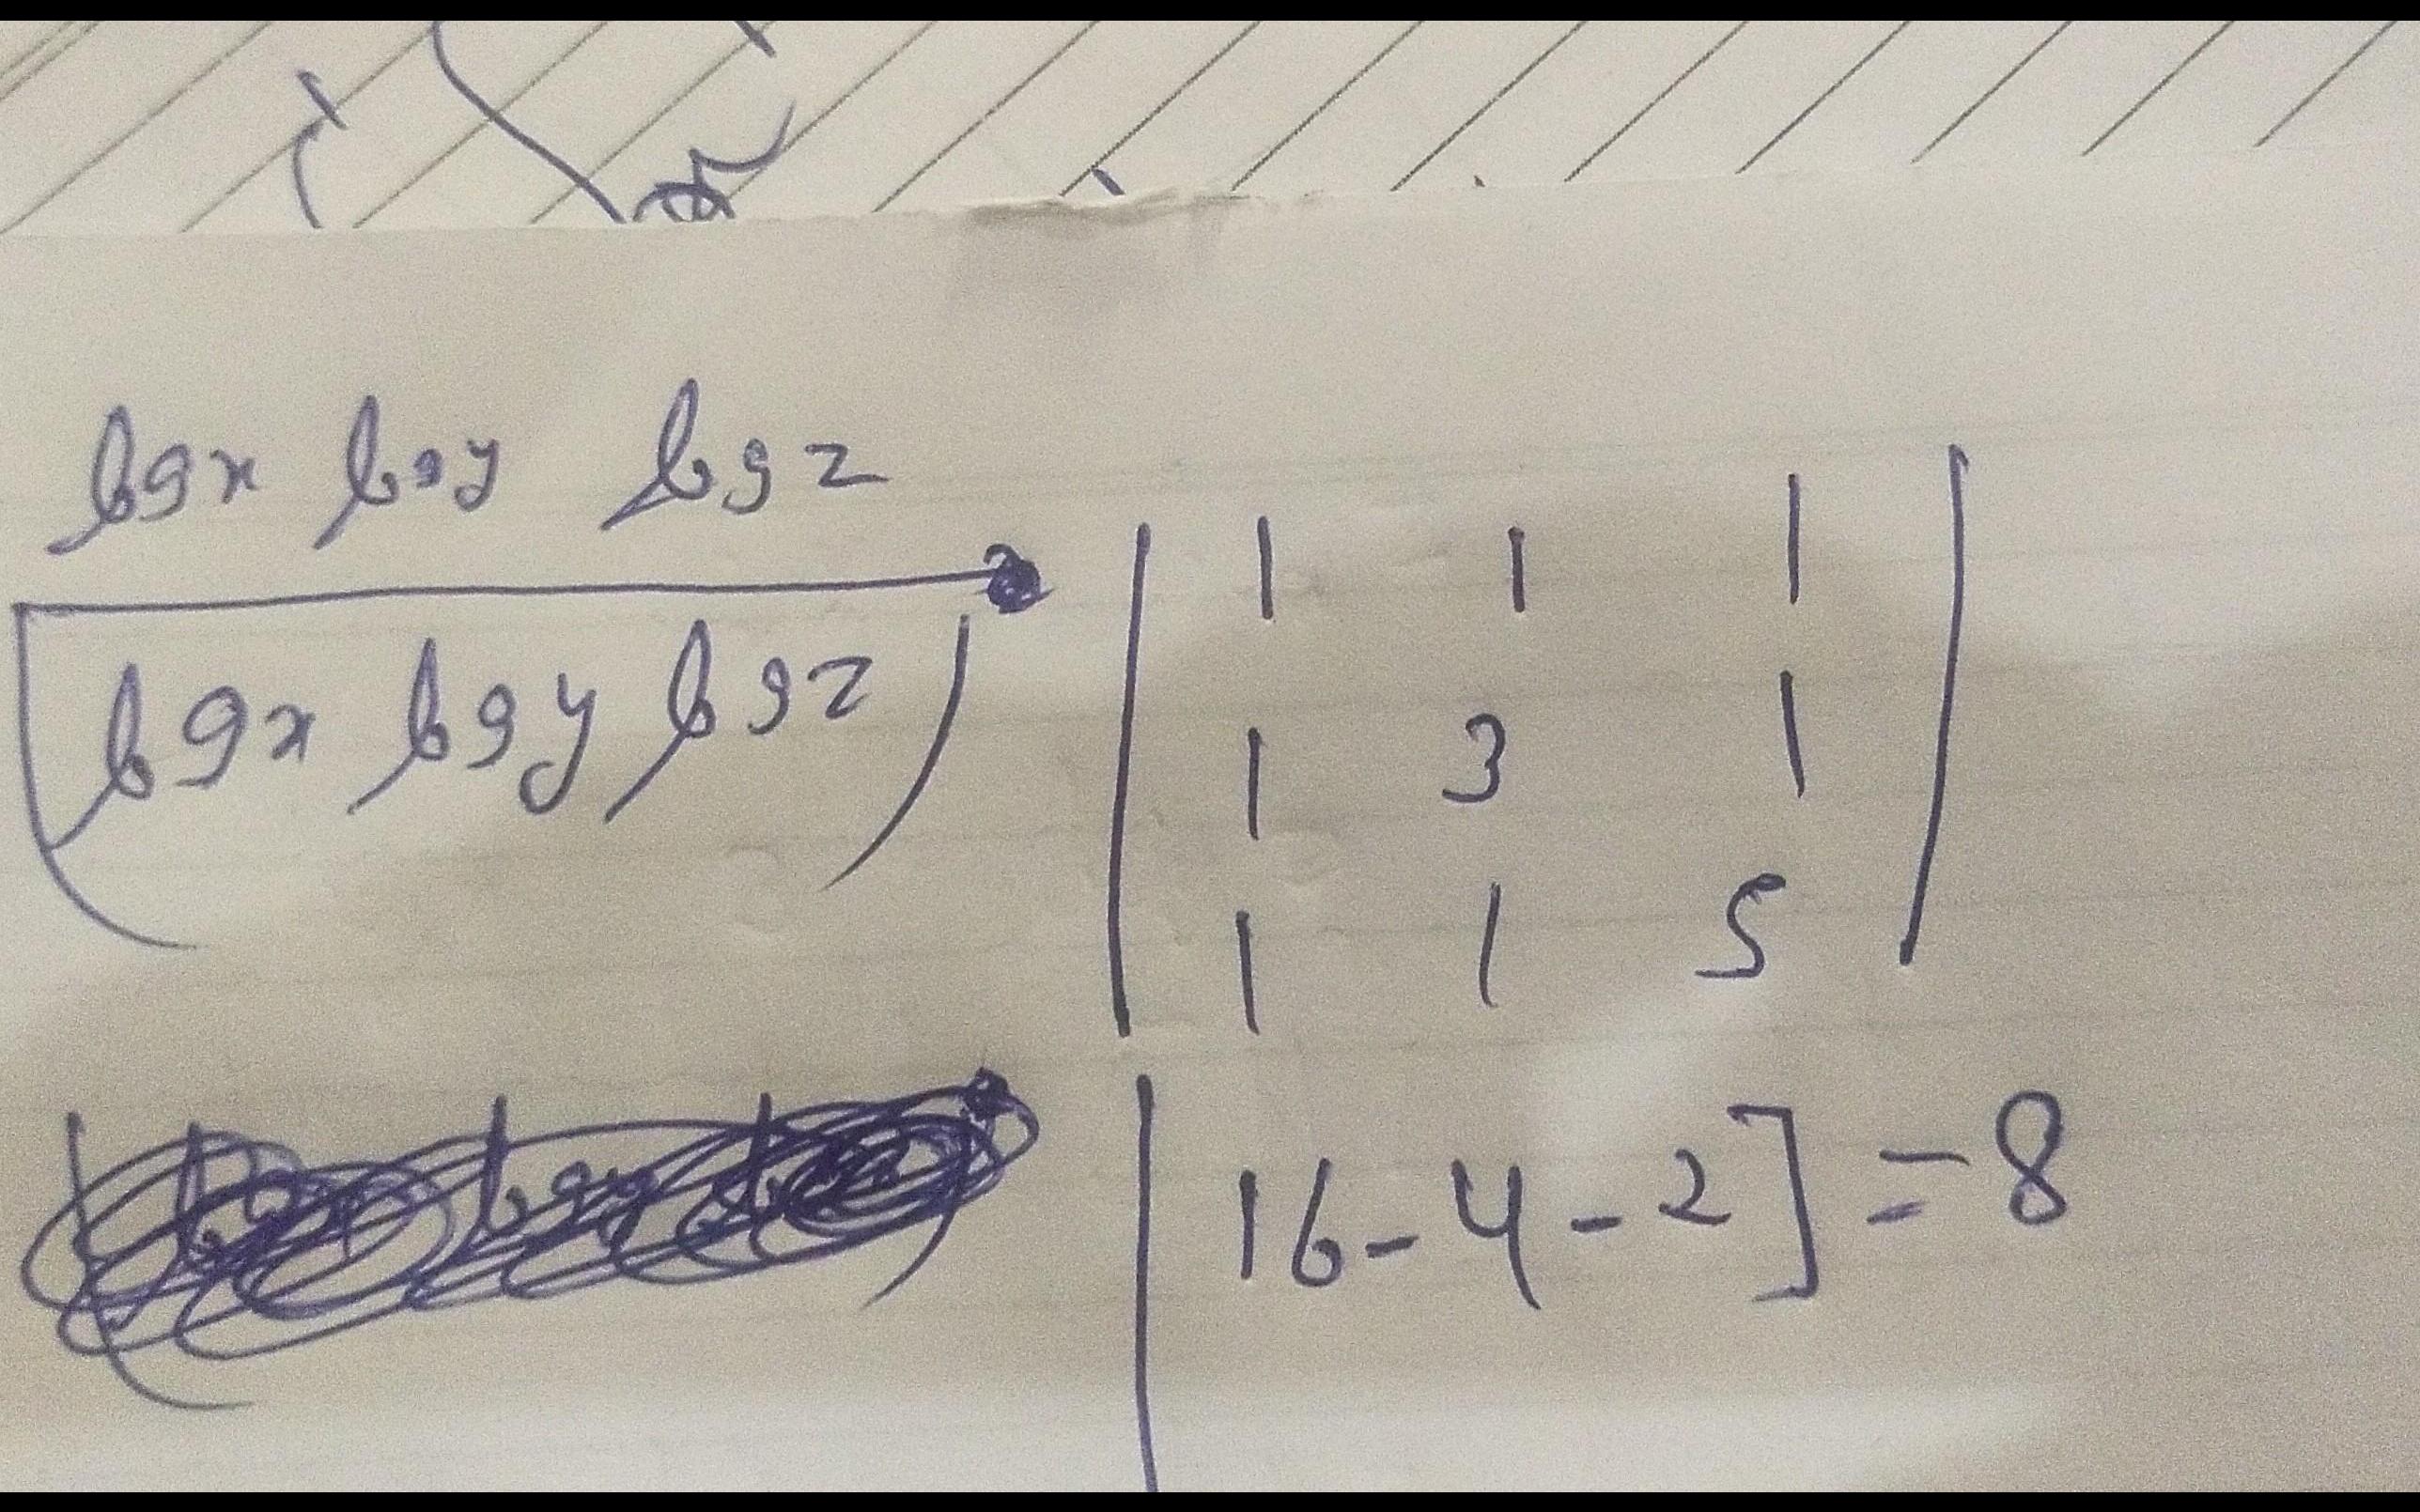 log x log y log z
(log x log y log z)
| 1 1 1 |
| 1 3 1 |
| 1 1 5 |
| 16 - 4 - 2] = 8